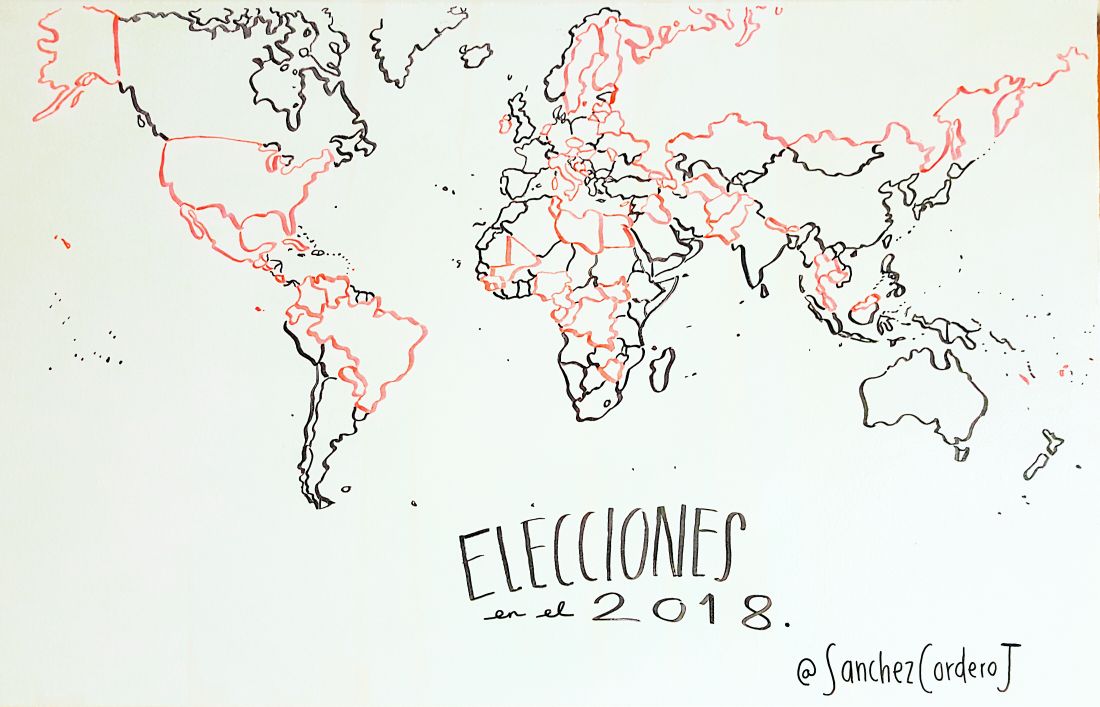 ELECCIONES
en el 2018.
@SanchezCorderoJ